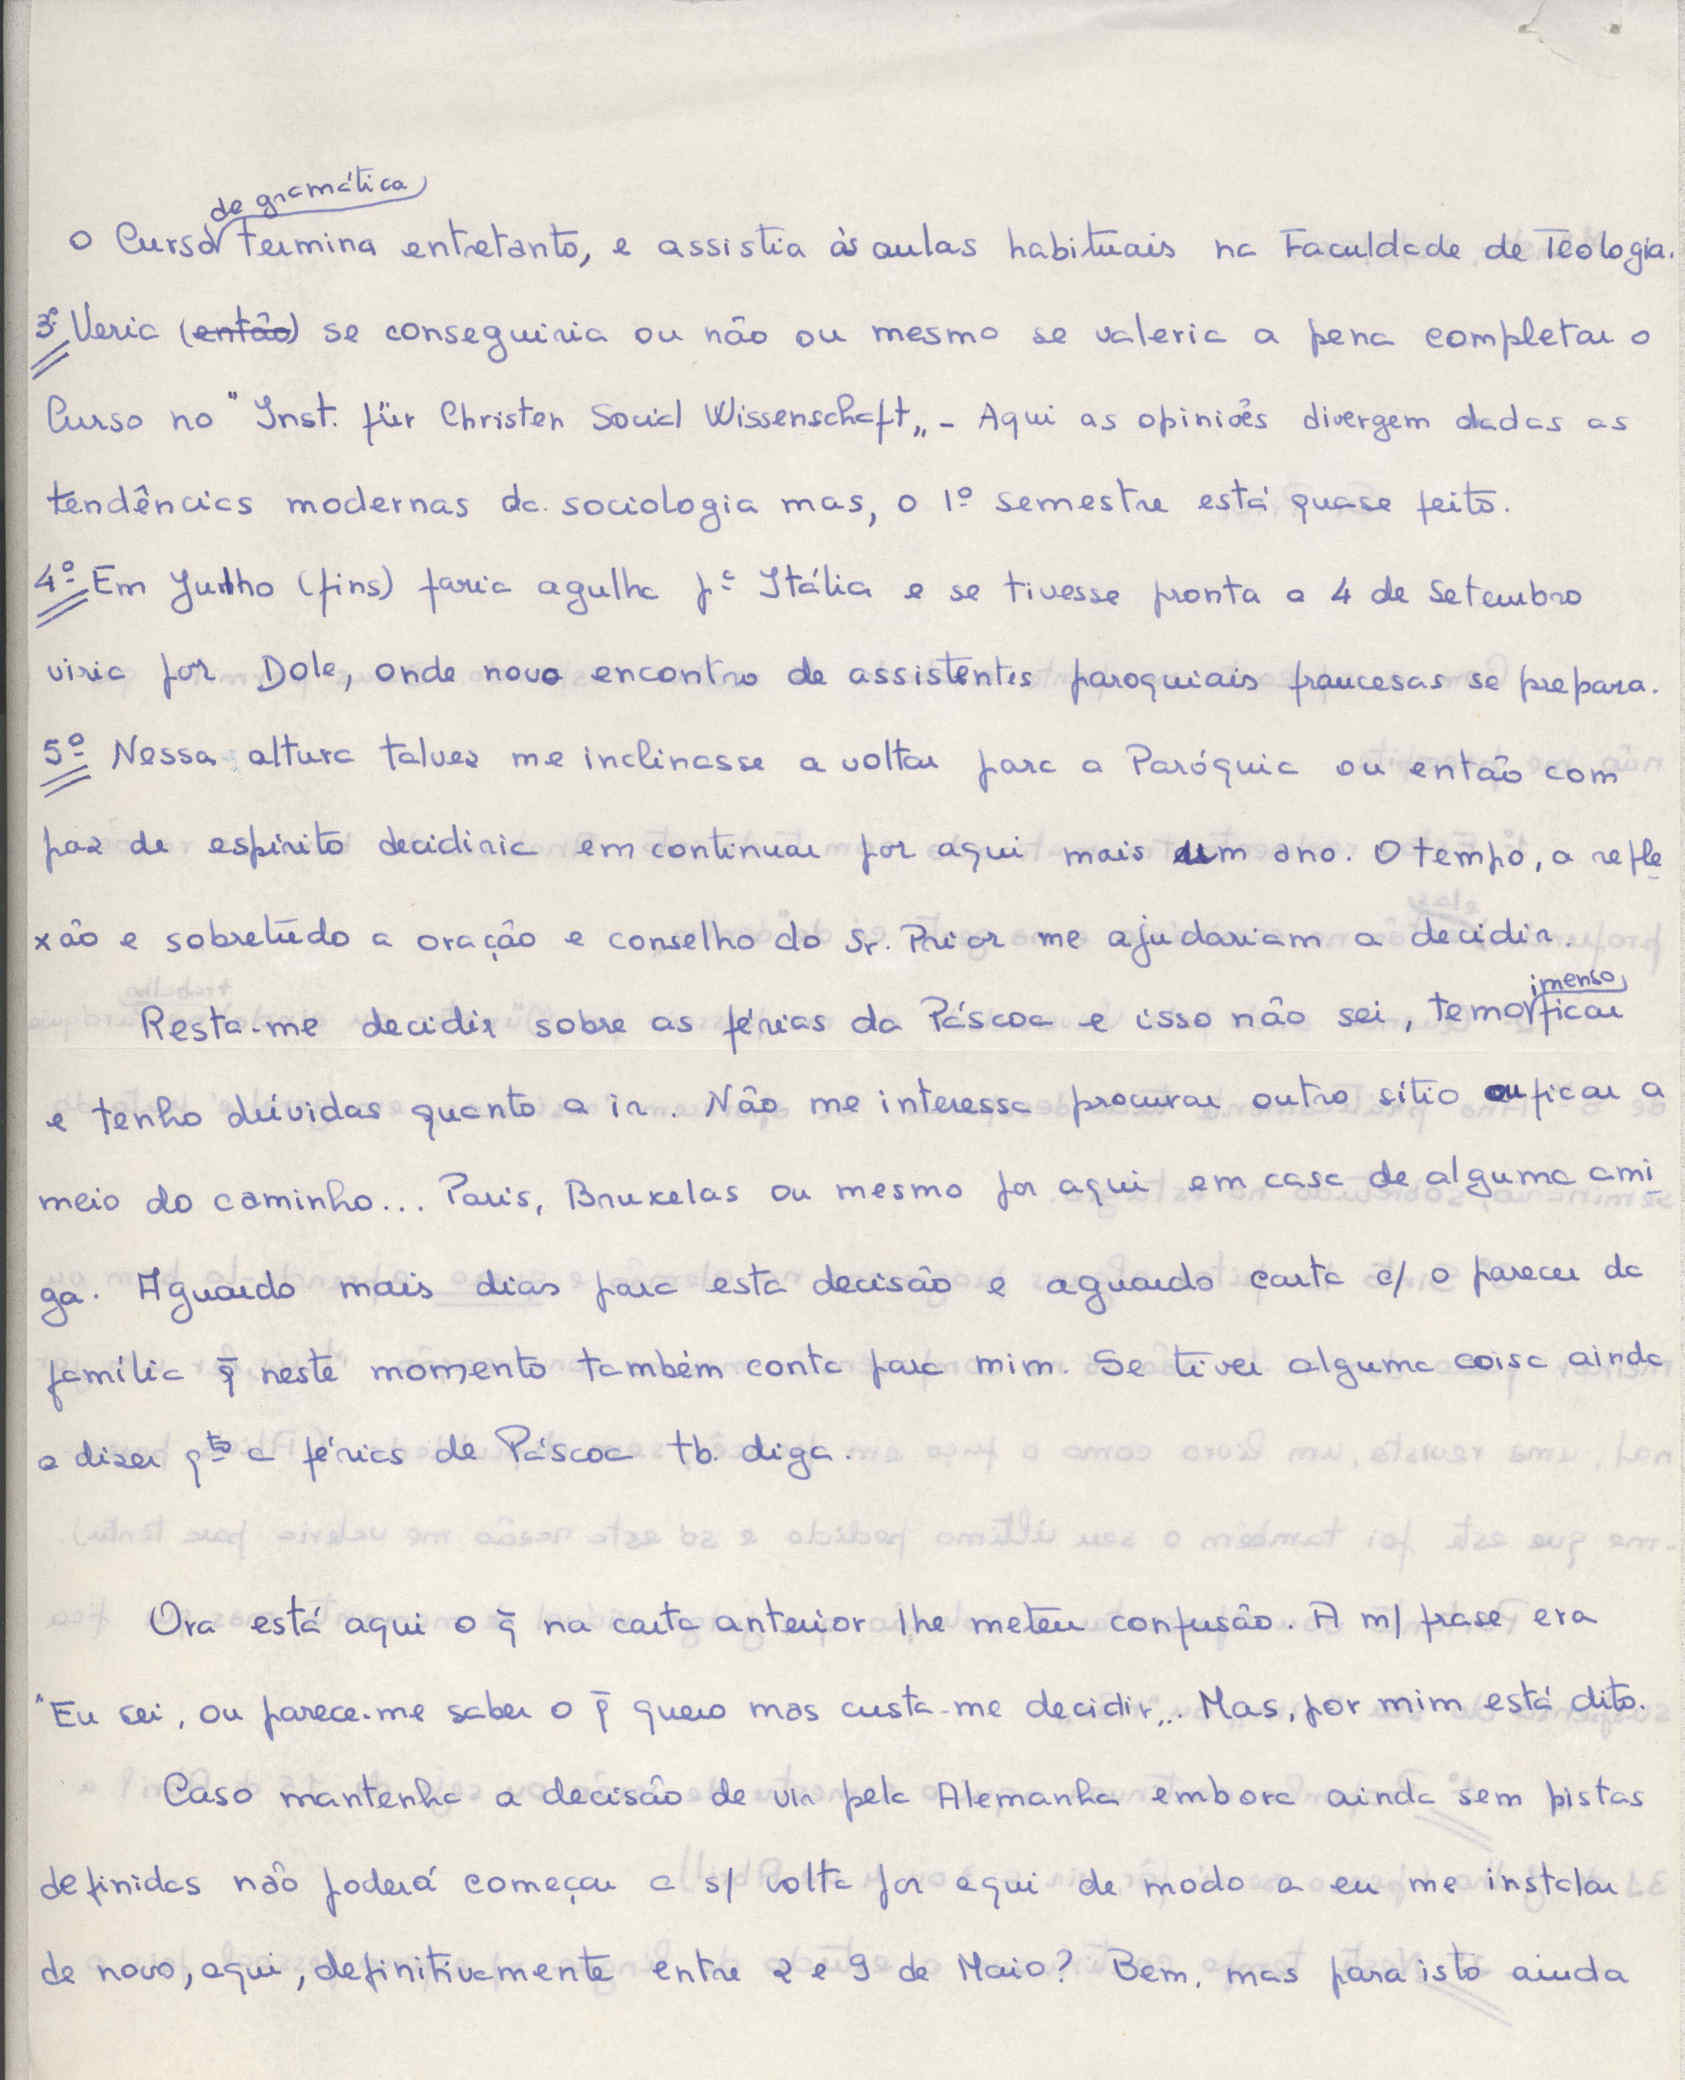 de gramática
O Curso termina entretanto, e assistia às aulas habituais na Faculdade de Teologia.
3º Veria (então) se conseguiria ou não ou mesmo se valeria a pena completar o
Curso no "Inst. für Christen Social Wissenschaft„ - Aqui as opiniões divergem dadas as
tendências modernas da sociologia mas, o 1º semestre está quase feito.
4º Em Junho (fins) faria agulha pª Itália e se tivesse pronta a 4 de Setembro
viria por Dole, onde novo encontro de assistentes paroquiais francesas se prepara.
5º Nessa altura talvez me inclinasse a voltar para a Paróquia ou então com
paz de espírito decidiria em continuar por aqui mais um ano. O tempo, a refle
xão e sobretudo a oração e conselho do Sr. Prior me ajudariam a decidir.
imenso
Resta-me decidir sobre as férias da Páscoa e isso não sei, temo ficar
e tenho dúvidas quanto a ir. Não me interessa procurar outro sítio ou ficar a
meio do caminho... Paris, Bruxelas ou mesmo por aqui em casa de alguma ami
ga. Aguardo mais dias para esta decisão e aguardo carta c/ o parecer da
família q̄ neste momento também conta para mim. Se tiver alguma coisa ainda
a dizer qto a férias de Páscoa tb. diga.
Ora está aqui o q̄ na carta anterior lhe meteu confusão. A m/ frase era
"Eu sei, ou parece-me saber o q̄ quero mas custa-me decidir„. Mas, por mim está dito.
Caso mantenha a decisão de vir pela Alemanha embora ainda sem pistas
definidas não poderá começar a s/ volta por aqui de modo a eu me instalar
de novo, aqui, definitivamente entre 2 e 9 de Maio? Bem, mas para isto ainda